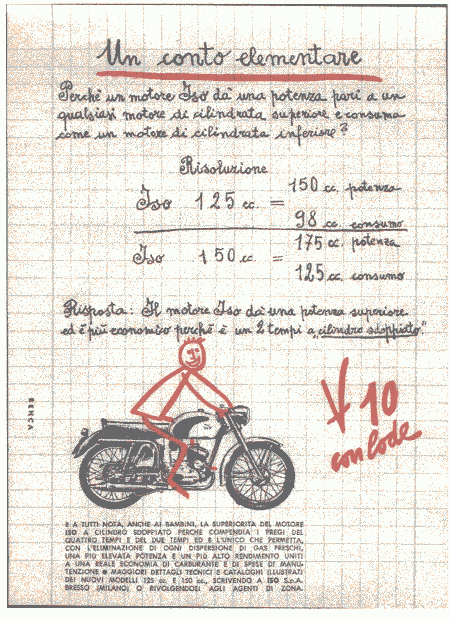 Un conto elementare
Perchè un motore Iso dà una potenza pari a un
qualsiasi motore di cilindrata superiore e consuma
come un motore di cilindrata inferiore?
Risoluzione
Iso 125 cc. = 150 cc. potenza
98 cc. consumo
Iso 150 cc. = 175 cc. potenza
125 cc. consumo
Risposta: Il motore Iso dà una potenza superiore
ed è più economico perchè è un 2 tempi a "cilindro sdoppiato".
10
con lode
BENCA
E A TUTTI NOTA, ANCHE AI BAMBINI, LA SUPERIORITÀ DEL MOTORE
ISO A CILINDRO SDOPPIATO PERCHÈ COMPENDIA I PREGI DEL
QUATTRO TEMPI E DEL DUE TEMPI ED E L'UNICO CHE PERMETTA,
CON L'ELIMINAZIONE DI OGNI DISPERSIONE DI GAS FRESCHI,
UNA PIÙ ELEVATA POTENZA E UN PIÙ ALTO RENDIMENTO UNITI
A UNA REALE ECONOMIA DI CARBURANTE E DI SPESE DI MANU-
TENZIONE • MAGGIORI DETTAGLI TECNICI E CATALOGHI ILLUSTRATI
DEI NUOVI MODELLI 125 cc. E 150 cc., SCRIVENDO A ISO S.p.A.
BRESSO (MILANO) O RIVOLGENDOSI AGLI AGENTI DI ZONA.